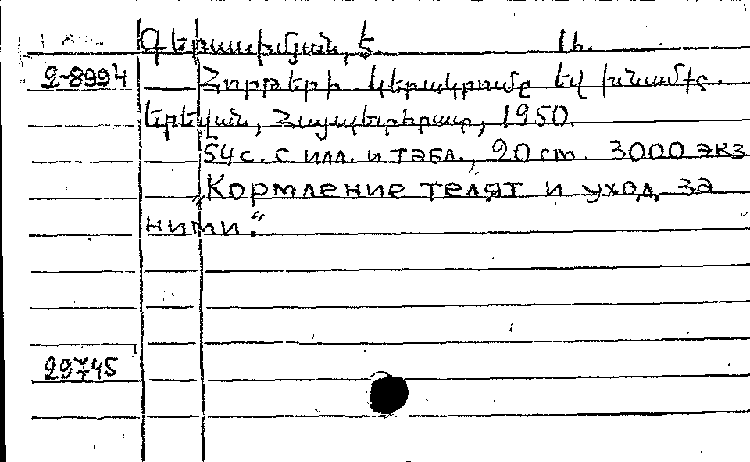 Գերասիմյան, Տ. Ա.
2-8994 Հորթերի կերակրումը եվ խնամքը.
Երեվան, Հայպետհրատ, 1950.
54 с. с илл. и табл., 20 cm. 3000 экз
„Кормление телят и уход за
ними.“
29745